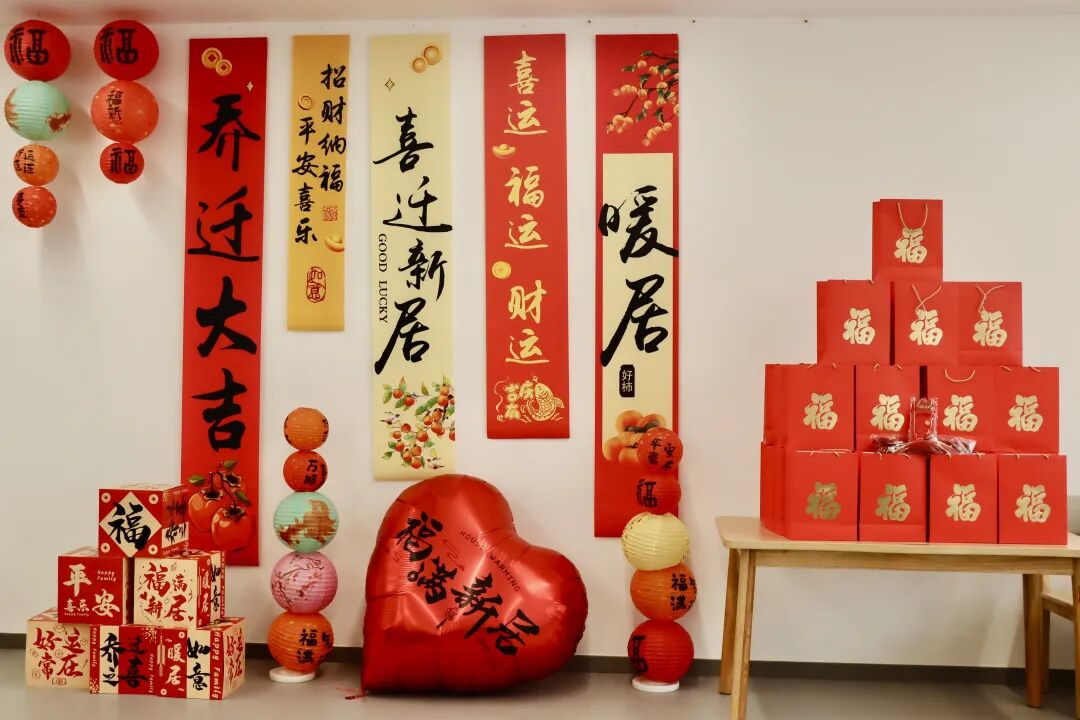 福
福
福新
福
乔迁大吉
招财纳福
平安喜乐
如意
喜迁新居
GOOD LUCKY
喜运
福运
财运
暖居
好柿
福
福
福
福
福
福
福
福
福
福
福
福
万福
福满
福满新居
HOUSE WARMING
平喜
福
福满
福
平安
喜乐
Happy Family
福满
新居
Happy family
好运
常在
乔迁
之喜
Happy Family
暖居
如意
好运
常在
Happy Family